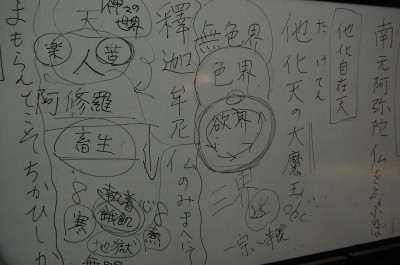 南无阿弥陀仏をとなふれば
他化自在天
たけてん
他化天の大魔王
無色界
色界
欲界
三界
迷
一宗一派
釋迦牟尼仏のみまへにて
天
神の世界
楽 人 苦
阿修羅
畜生
執着
餓鬼
寒
熱
地獄
無間
まもらんとこそちかひしか